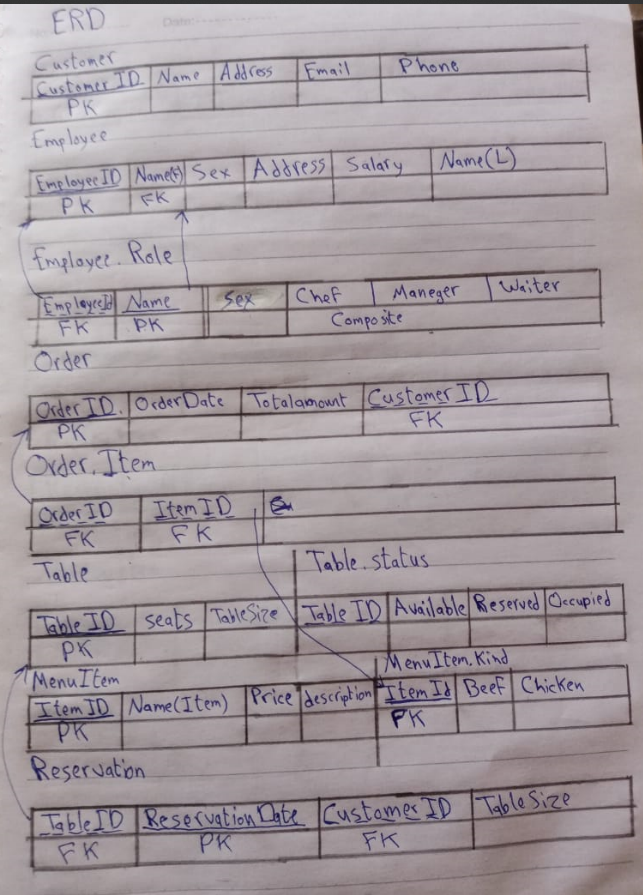 ERD
Customer
Customer ID Name Address Email Phone
PK
Employee
EmployeeID Name(F) Sex Address Salary Name(L)
PK FK
Employee. Role
EmployeeId Name Sex Chef Maneger Waiter
FK PK Composite
Order
Order ID. OrderDate Totalamount Customer ID
PK FK
Order. Item
Order ID Item ID
FK FK
Table Table. status
Table ID seats TableSize Table ID Available Reserved Occupied
PK
MenuItem MenuItem. Kind
Item ID Name(Item) Price description Item Id Beef Chicken
PK PK
Reservation
TableID Reservation Date Customer ID Table Size
FK PK FK